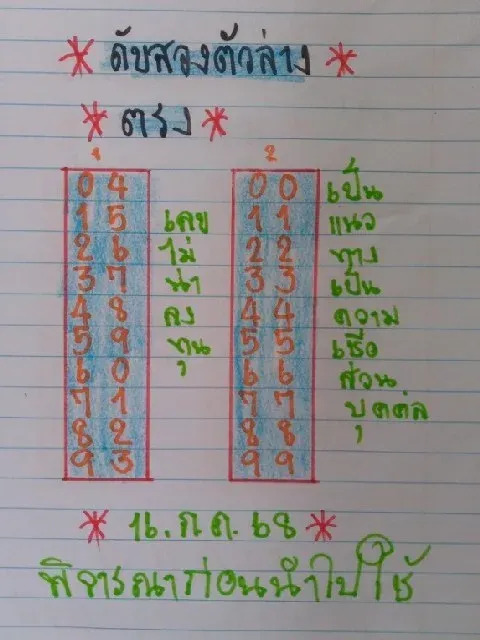 * ดับสองตัวล่าง *
* ตรง *
1
04
15
26
37
48
59
60
71
82
93
เลข
ไม่
น่า
ลง
ทุน
2
00
11
22
33
44
55
66
77
88
99
เป็น
แนว
ทาง
เป็น
ความ
เชื่อ
ส่วน
บุคคล
* 16.ก.ค.68 *
พิจารณาก่อนนำไปใช้